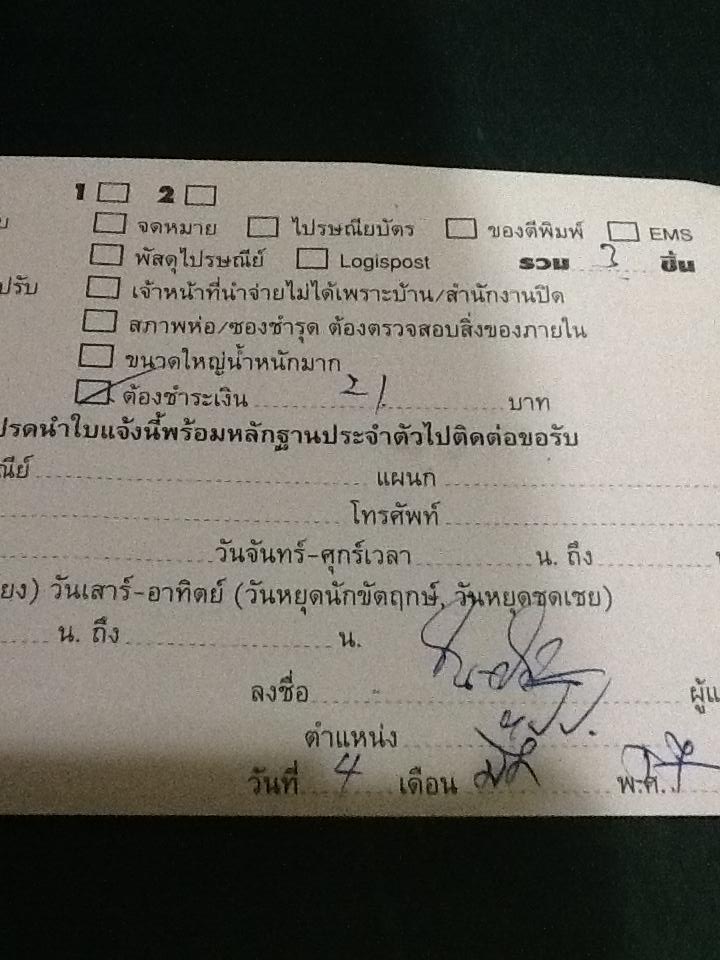 1 2
จดหมาย ไปรษณียบัตร ของตีพิมพ์ EMS
พัสดุไปรษณีย์ Logispost รวม 3 ชิ้น
ปรับ เจ้าหน้าที่นำจ่ายไม่ได้เพราะบ้าน/สำนักงานปิด
สภาพห่อ/ซองชำรุด ต้องตรวจสอบสิ่งของภายใน
ขนาดใหญ่น้ำหนักมาก
ต้องชำระเงิน 21 บาท
ปรดนำใบแจ้งนี้พร้อมหลักฐานประจำตัวไปติดต่อขอรับ
ณีย์ แผนก
โทรศัพท์
วันจันทร์-ศุกร์เวลา น. ถึง
ยง) วันเสาร์-อาทิตย์ (วันหยุดนักขัตฤกษ์, วันหยุดชดเชย)
น. ถึง น.
ลงชื่อ ผู้แ
ตำแหน่ง
วันที่ 4 เดือน พ.ศ.